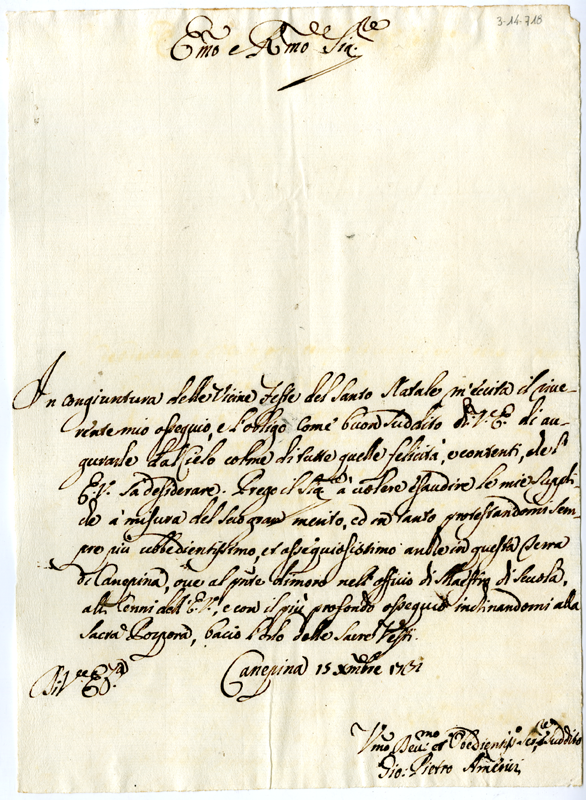 3-14-718
Emo e Rmo Sig.re
In congiuntura delle Vicine Feste del Santo Natale m'eccita il rive-
rente mio ossequio, e l'obligo come buon Suddito di V.E. di au-
gurarle dal Cielo colme di tutte quelle felicità, e contenti, che l'
E.V. sa desiderare. Prego il Sig.re à volere esaudire le mie suppli-
che à misura del suo gran merito, ed in tanto protestandomi sem-
pre più ubbedientissimo, et ossequiosissimo anche in questa Terra
di Canepina, ove al pnte dimoro nell'officio di Maestro di Scuola,
alli Cenni dell'E.V., e con il più profondo ossequio inclinandomi alla
Sacra Porpora, bacio l'orlo delle Sacre Vesti.
Di V.ra E.za
Canepina 15 Xmbre
Vmo Dev.mo et Obedientis.o Ser.re e Suddito
Gio: Pietro